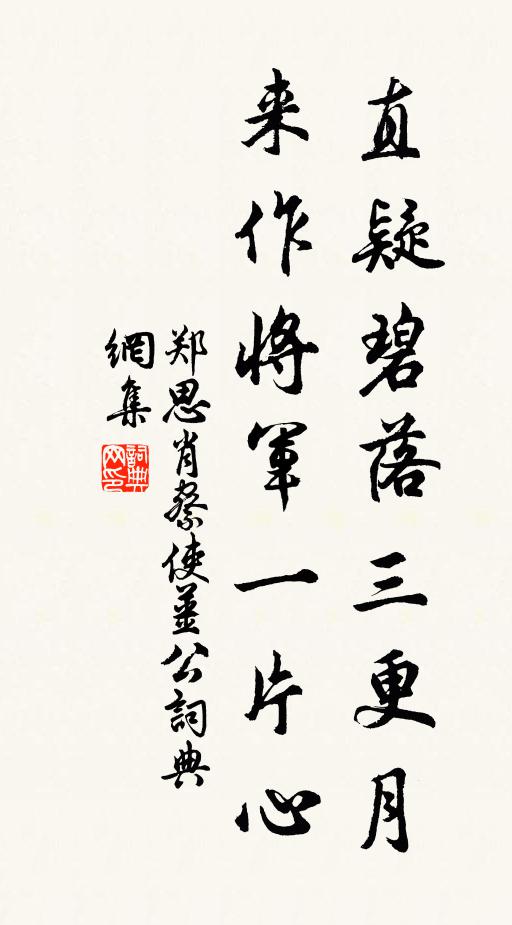 直疑碧落三更月
来作將軍一片心
郑思肖祭使薑公詞典
網集
詞典
网印